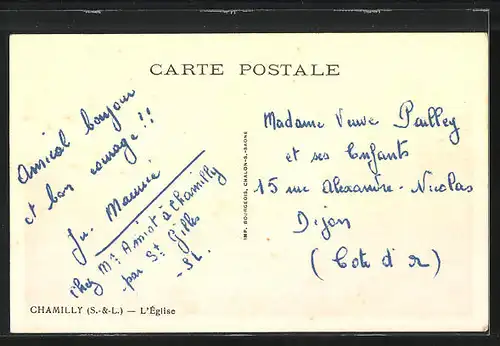 CARTE POSTALE
Amical bonjour
et bon courage !!
Ju. Maurice
chez Mr Amiot à Chamilly
par St Gilles
- S L.
IMP. BOURGEOIS, CHALON-S.-SAONE
Madame Veuve Pailley
et ses Enfants
15 rue Alexandre - Nicolas
Dijon
( Cote d'or )
CHAMILLY (S.-&-L.) — L'Église